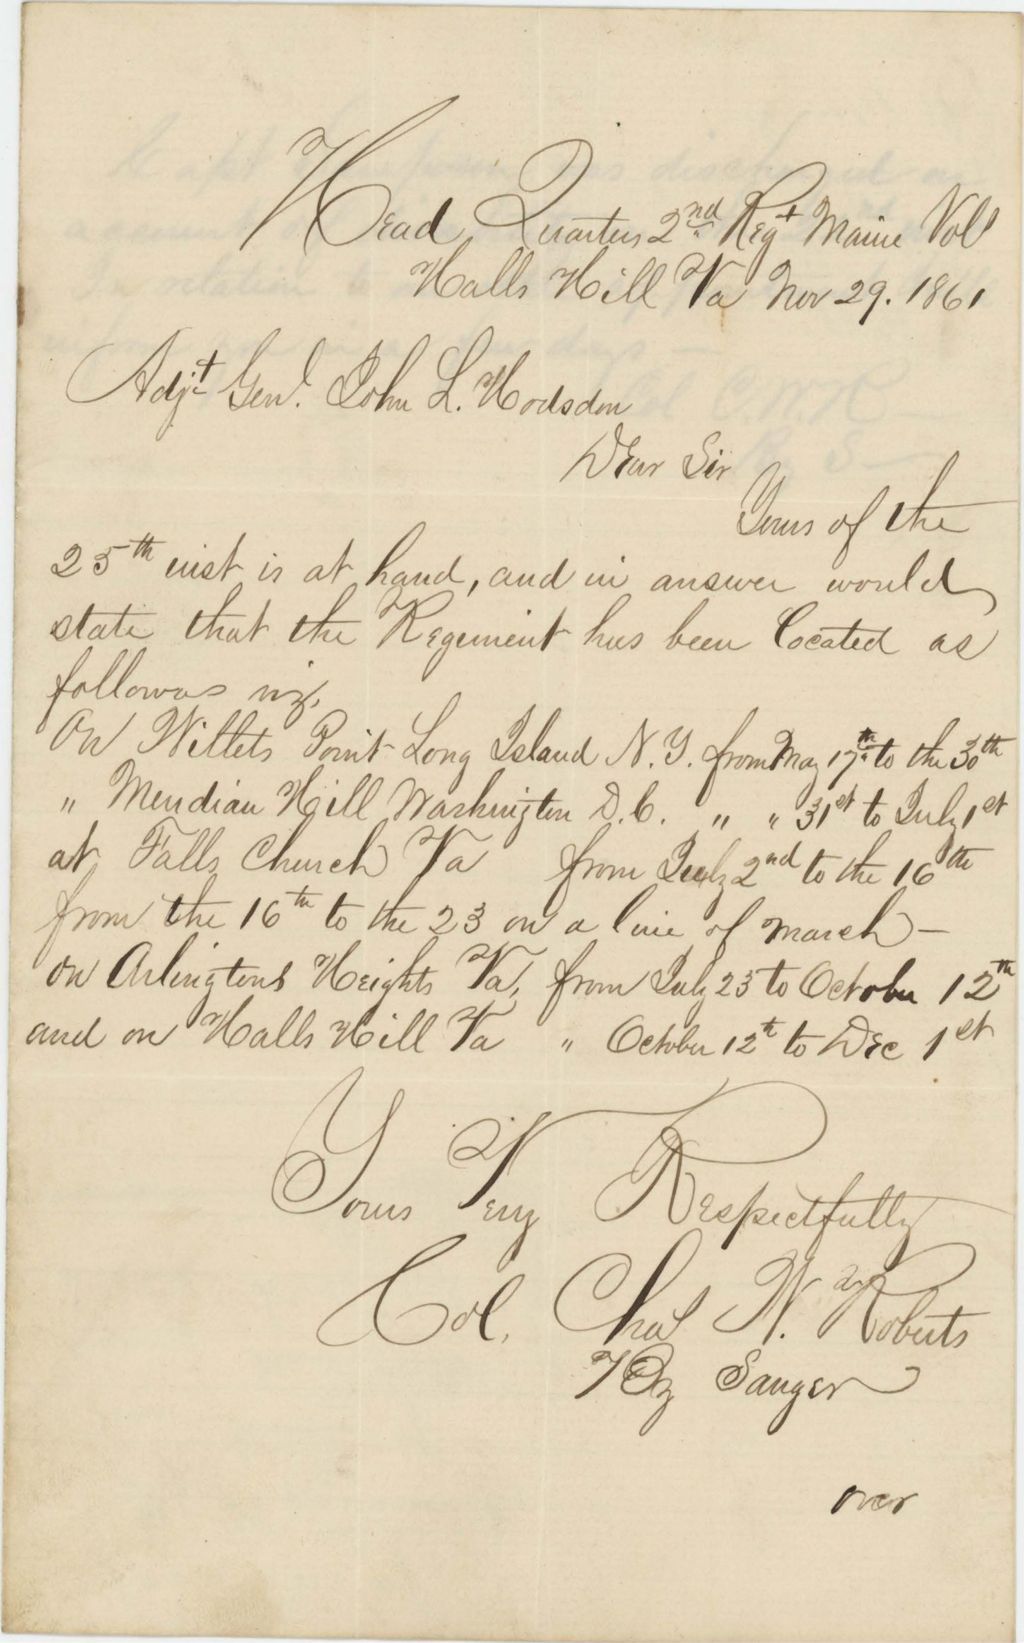 Head Quarters 2nd Regt Maine Vol
Halls Hill Va Nov 29. 1861
Adjt Genl. John L. Hodsdon
Dear Sir
Yours of the
25th inst is at hand, and in answer would
state that the Regement has been located as
follows viz,
On Willets Point Long Island N.Y. from May 17th to the 30th
" Meridian Hill Washington D.C. " " 31st to July 1st
at Falls Church Va from July 2nd to the 16th
from the 16th to the 23 on a line of march —
on Arlingtons Heights Va, from July 23 to October 12th
and on Halls Hill Va " October 12th to Dec 1st
Yours Very Respectfully
Col. Chas W. Roberts
By Sanger
over